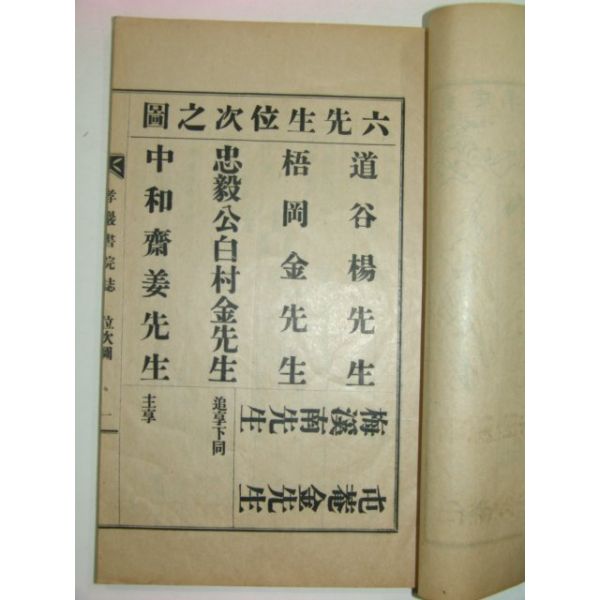 六先生位次之圖
道谷楊先生
梧岡金先生
忠毅公白村金先生 追享下同
中和齋姜先生 主享
梅溪南先生
屯菴金先生
孝巖書院誌 位次圖 一